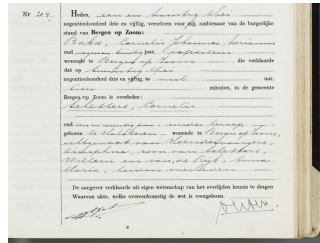 Nr 204.
Heden, een en twintig Mei
negentienhonderd drie en vijftig, verscheen voor mij, ambtenaar van de burgerlijke
stand van Bergen op Zoom:
Baks, Cornelis Johannes Adrianus
oud jaar,
wonende te Bergen op Zoom, die verklaarde
dat op twintig Mei
negentienhonderd drie en vijftig, te uur,
tien minuten, in de gemeente
Bergen op Zoom is overleden:
Schetters, Cornelis
oud jaar, zonder beroep,
geboren te Halsteren - wonende te Bergen op Zoom,
echtgenoot van
Josephina, zoon van Schetters,
Willem en van de Rijk, Anna
Maria, beiden overleden.
De aangever verklaarde uit eigen wetenschap van het overlijden kennis te dragen
Waarvan akte, welke overeenkomstig de wet is voorgelezen.